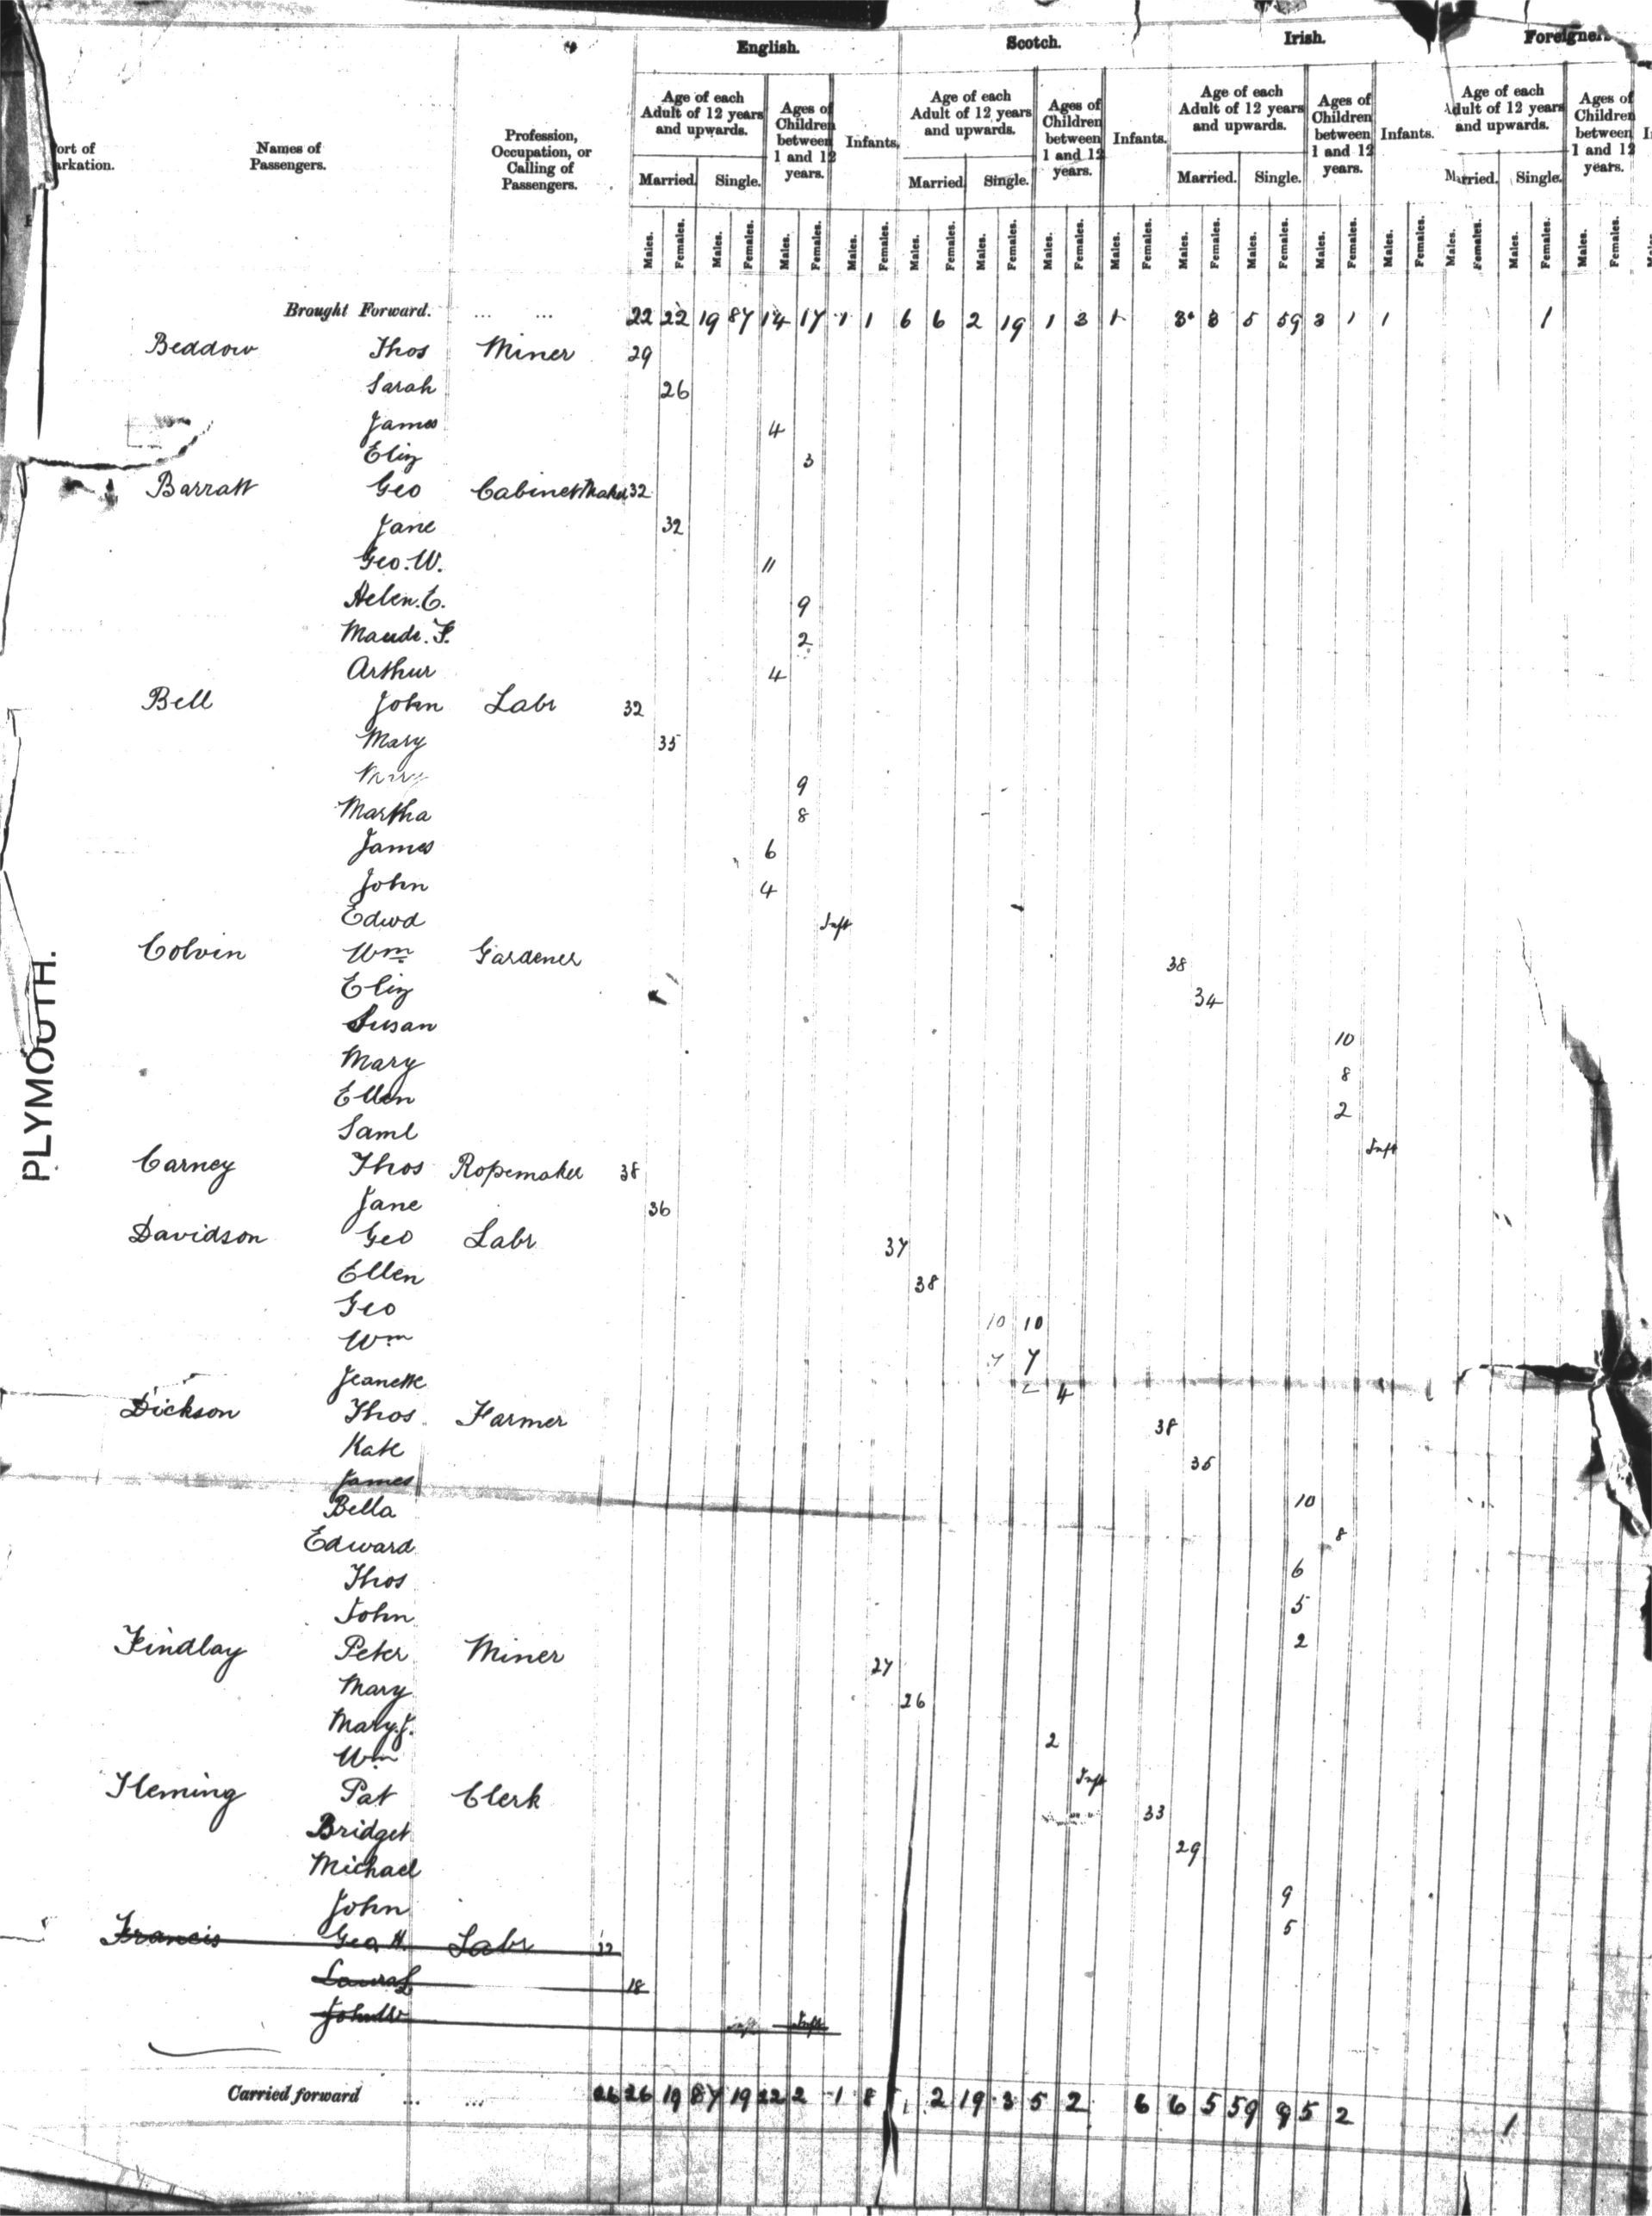 English. Scotch. Irish. Foreigner
Port of
arkation.
Names of
Passengers.
Profession,
Occupation, or
Calling of
Passengers.
Age of each
Adult of 12 years
and upwards.
Married. Single.
Ages of
Children
between
1 and 12
years.
Infants.
Age of each
Adult of 12 years
and upwards.
Married. Single.
Ages of
Children
between
1 and 12
years.
Infants.
Age of each
Adult of 12 years
and upwards.
Married. Single.
Ages of
Children
between
1 and 12
years.
Infants.
Age of each
Adult of 12 years
and upwards.
Married. Single.
Ages of
Children
between
1 and 12
years.
Males. Females. Males. Females. Males. Females. Males. Females. Males. Females. Males. Females. Males. Females. Males. Females. Males. Females. Males. Females. Males. Females. Males. Females. Males. Females. Males. Females. Males. Females.
Brought Forward. ... ... 22 22 19 87 14 17 1 1 6 6 2 19 1 3 1 3 3 5 59 3 1 1 1
Beddow Thos Miner 29
Sarah 26
James 4
Eliz 3
Barratt Geo Cabinet Maker 32
Jane 32
Geo. W. 11
Helen. E. 9
Maude. F. 2
Arthur 4
Bell John Labr 32
Mary 35
Mary 9
Martha 8
James 6
John 4
Edwd Inft
Colvin Wm Gardener 38
Eliz 34
Susan 10
Mary 8
Ellen 2
Saml Inft
Carney Thos Ropemaker 38
Jane 36
Davidson Geo Labr 37
Ellen 38
Geo 10 10
Wm 7 7
Jeanette 4
Dickson Thos Farmer 38
Kate 35
James 10
Bella 8
Edward 6
Thos 5
John 2
Findlay Peter Miner 27
Mary 26
Mary J. 2
Wm Inft
Fleming Pat Clerk 33
Bridget 29
Michael 9
John 5
Francis Geo H. Labr
Laura L 18
John W Inft
Carried forward ... ... 26 26 19 87 19 22 2 1 8 2 19 3 5 2 6 6 5 59 9 5 2 1
PLYMOUTH.